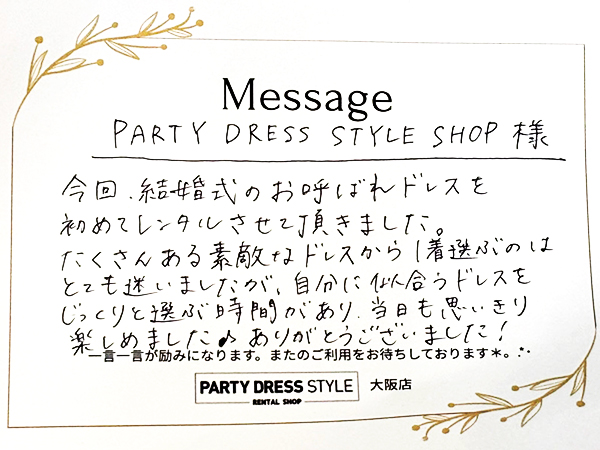 Message
PARTY DRESS STYLE SHOP 様
今回、結婚式のお呼ばれドレスを
初めてレンタルさせて頂きました。
たくさんある素敵なドレスから1着選ぶのは
とても迷いましたが、自分に似合うドレスを
じっくりと選ぶ時間があり、当日も思いきり
楽しめました♪ありがとうございました!
一言一言が励みになります。またのご利用をお待ちしております*。∴
PARTY DRESS STYLE 大阪店
RENTAL SHOP